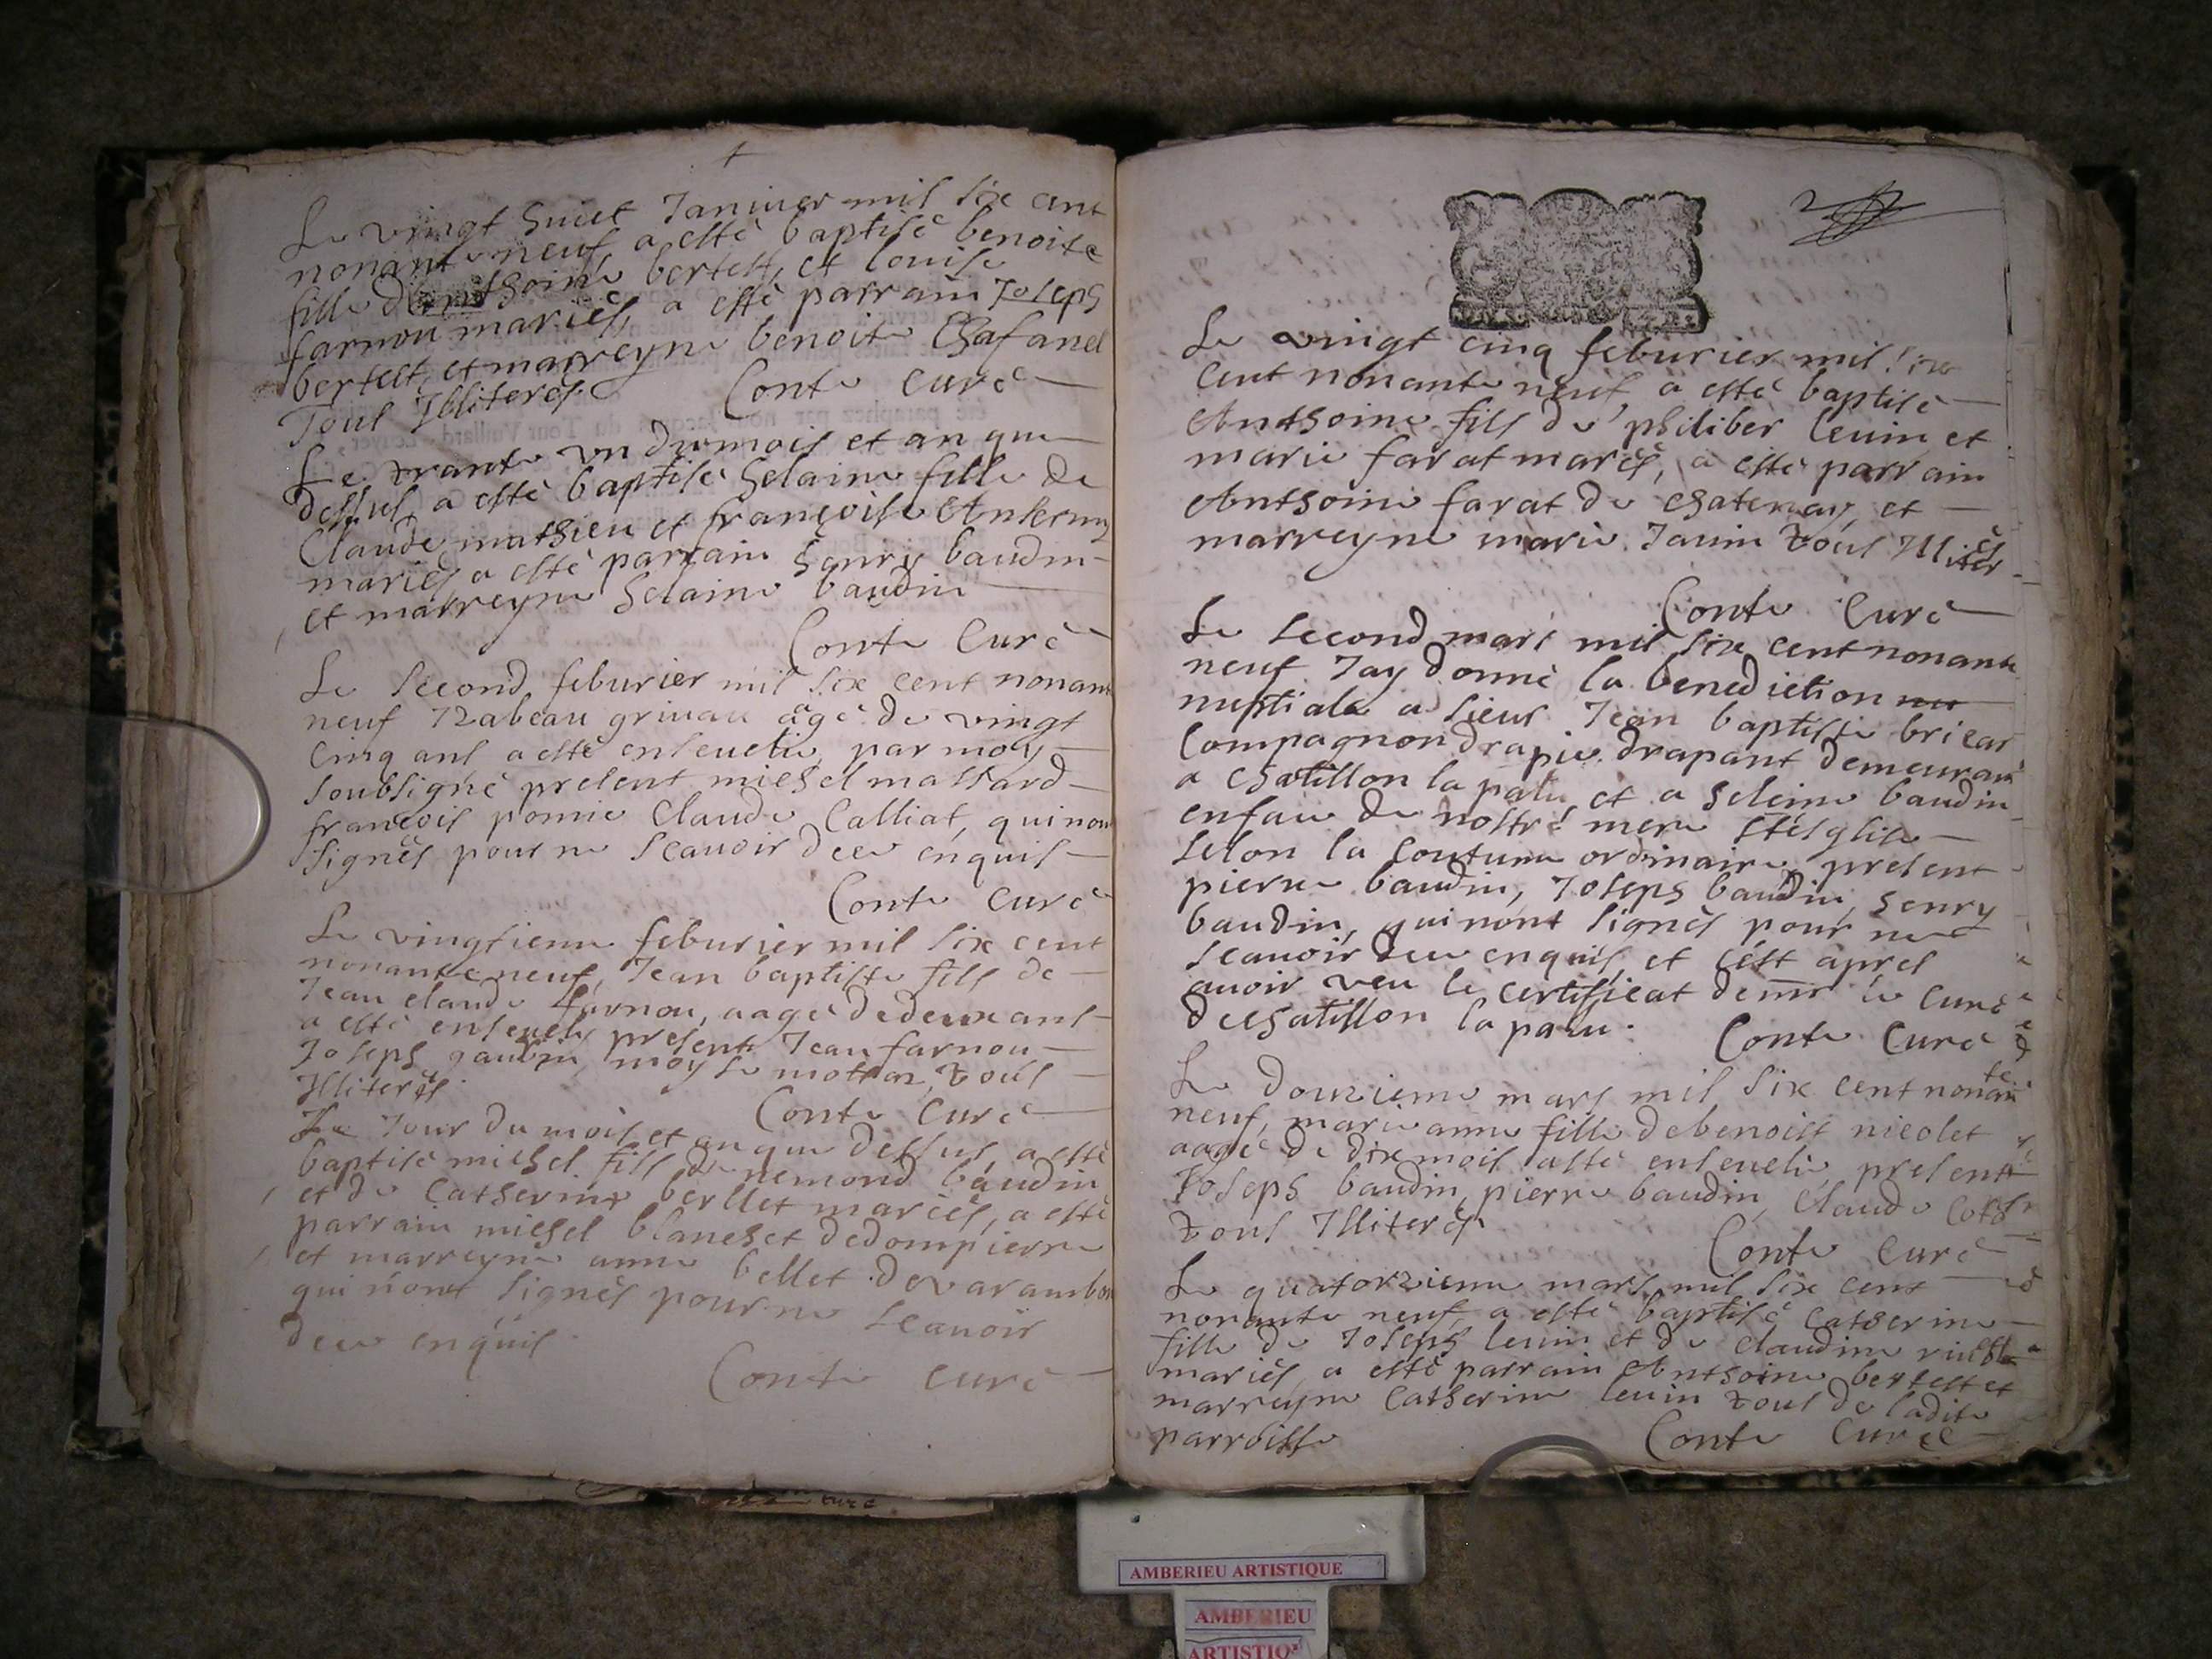 Le vingt huict Janiuer mil six cent
nonante neuf, a esté baptisé benoite
fille danthoine bertelt, et louise
farnou mariés, a esté parrain Joseph
bertelt, et marreyne benoite Chafanel
Tous Illiterés Conte Curé
Le trante un du mois et an que
dessus, a esté baptisé helaine fille de
Claude mathieu et françoise
mariés a esté parrain henry baudin
et marreyne helaine baudin
Conte Curé
Le second feburier mil six cent nonante
neuf Izabeau griuau âgé de vingt
cinq ans a esté enseuelie, par moy
soubsigné present michel massard
françois pomie Claude Calliat, qui nont
signés pour ne scauoir de ce enquis
Conte Curé
Le vingtieme feburier mil six cent
nonante neuf, Jean baptiste fils de
Jean claude farnou, aagé de deux ans
a esté enseueli present Jean farnou
Joseph baudin moyse tous
Illiterés
Conte Curé
Le Jour du mois et an que dessus, a esté
baptisé michel fils de nemond baudin
et de Catherine berllet mariés, a esté
parrain michel blanchet de dompierre
et marreyne anne bellet de varambon
qui n'ont signés pour ne scauoir
de ce enquis
Conte curé
2
Le vingt cinq feburier mil six
Cent nonante neuf, a esté baptisé
Anthoine fils de philiber leuin et
marie farat marés, a esté parrain
Anthoine farat de chatenay, et
marreyne marie Janin tous Illiterés
Conte Curé
Le second mars mil six cent nonante
neuf Jay donné la benediction nu
nuptiale a sieur Jean baptiste bricar
Compagnon drapie drapant demeurant
a chatillon la palu, et a heleine baudin
enfans de nostre mere stésglise
selon la coutume ordinaire, present
pierre baudin, Joseph baudin, henry
baudin, qui nont signés pour ne
scauoir de ce enquis, et cést aprés
auoir veu le certificat de mr le curé
de chatillon la palu. Conte Curé
Le douzieme mars mil six cent nonante
neuf, marie anne fille de benoist nicolet
aagé de dix mois a esté enseuelie, present
Joseph baudin, pierre baudin, Claude
tous Illiterés
Conte Curé
Le quatorzieme mars mil six cent
nonante neuf, a esté baptisé Catherine
fille de Joseph leuin et de claudine
mariés, a esté parrain Anthoine bertelt et
marreyne Catherine leuin tous de ladite
parroisse Conte Curé
AMBERIEU ARTISTIQUE
AMBERIEU
ARTISTIQ